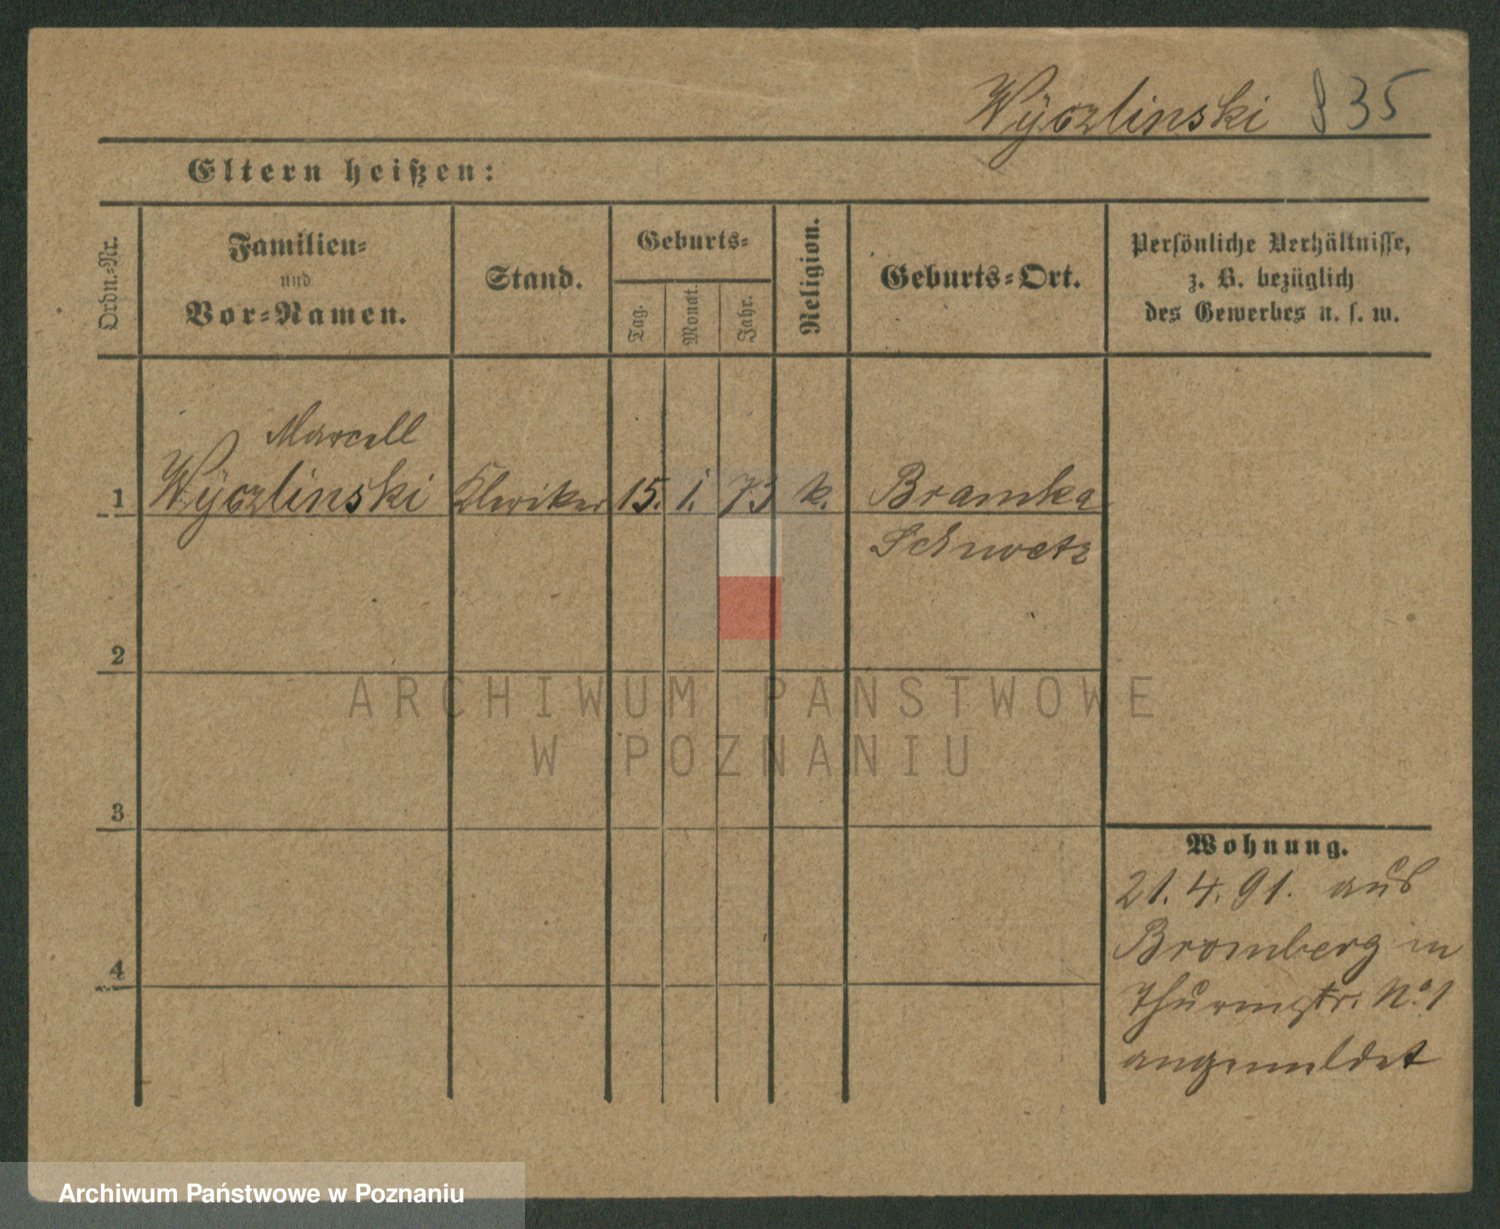 Wyczlinski 835
Eltern heißen:
Ordn.=Nr.
Familien=
und
Vor=Namen.
Stand.
Geburts=
Tag.
Monat.
Jahr.
Religion.
Geburts=Ort.
Persönliche Verhältnisse,
z. B. bezüglich
des Gewerbes u. s. w.
Marcell
1 Wÿczlinski 15. 1. 73 k. Bramka
Schwetz
2
ARCHIWUM PAŃSTWOWE
W POZNANIU
3
Wohnung.
21. 4. 91. aus
Bromberg in
Thurmstr. No. 1
angemeldet
4
Archiwum Państwowe w Poznaniu